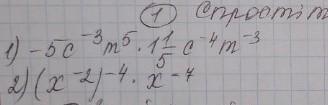 ① Спростіт
1) -5c⁻³m⁵ · 1 1/5 c⁻⁴m⁻³
2) (x⁻²)⁻⁴ · x⁻⁷